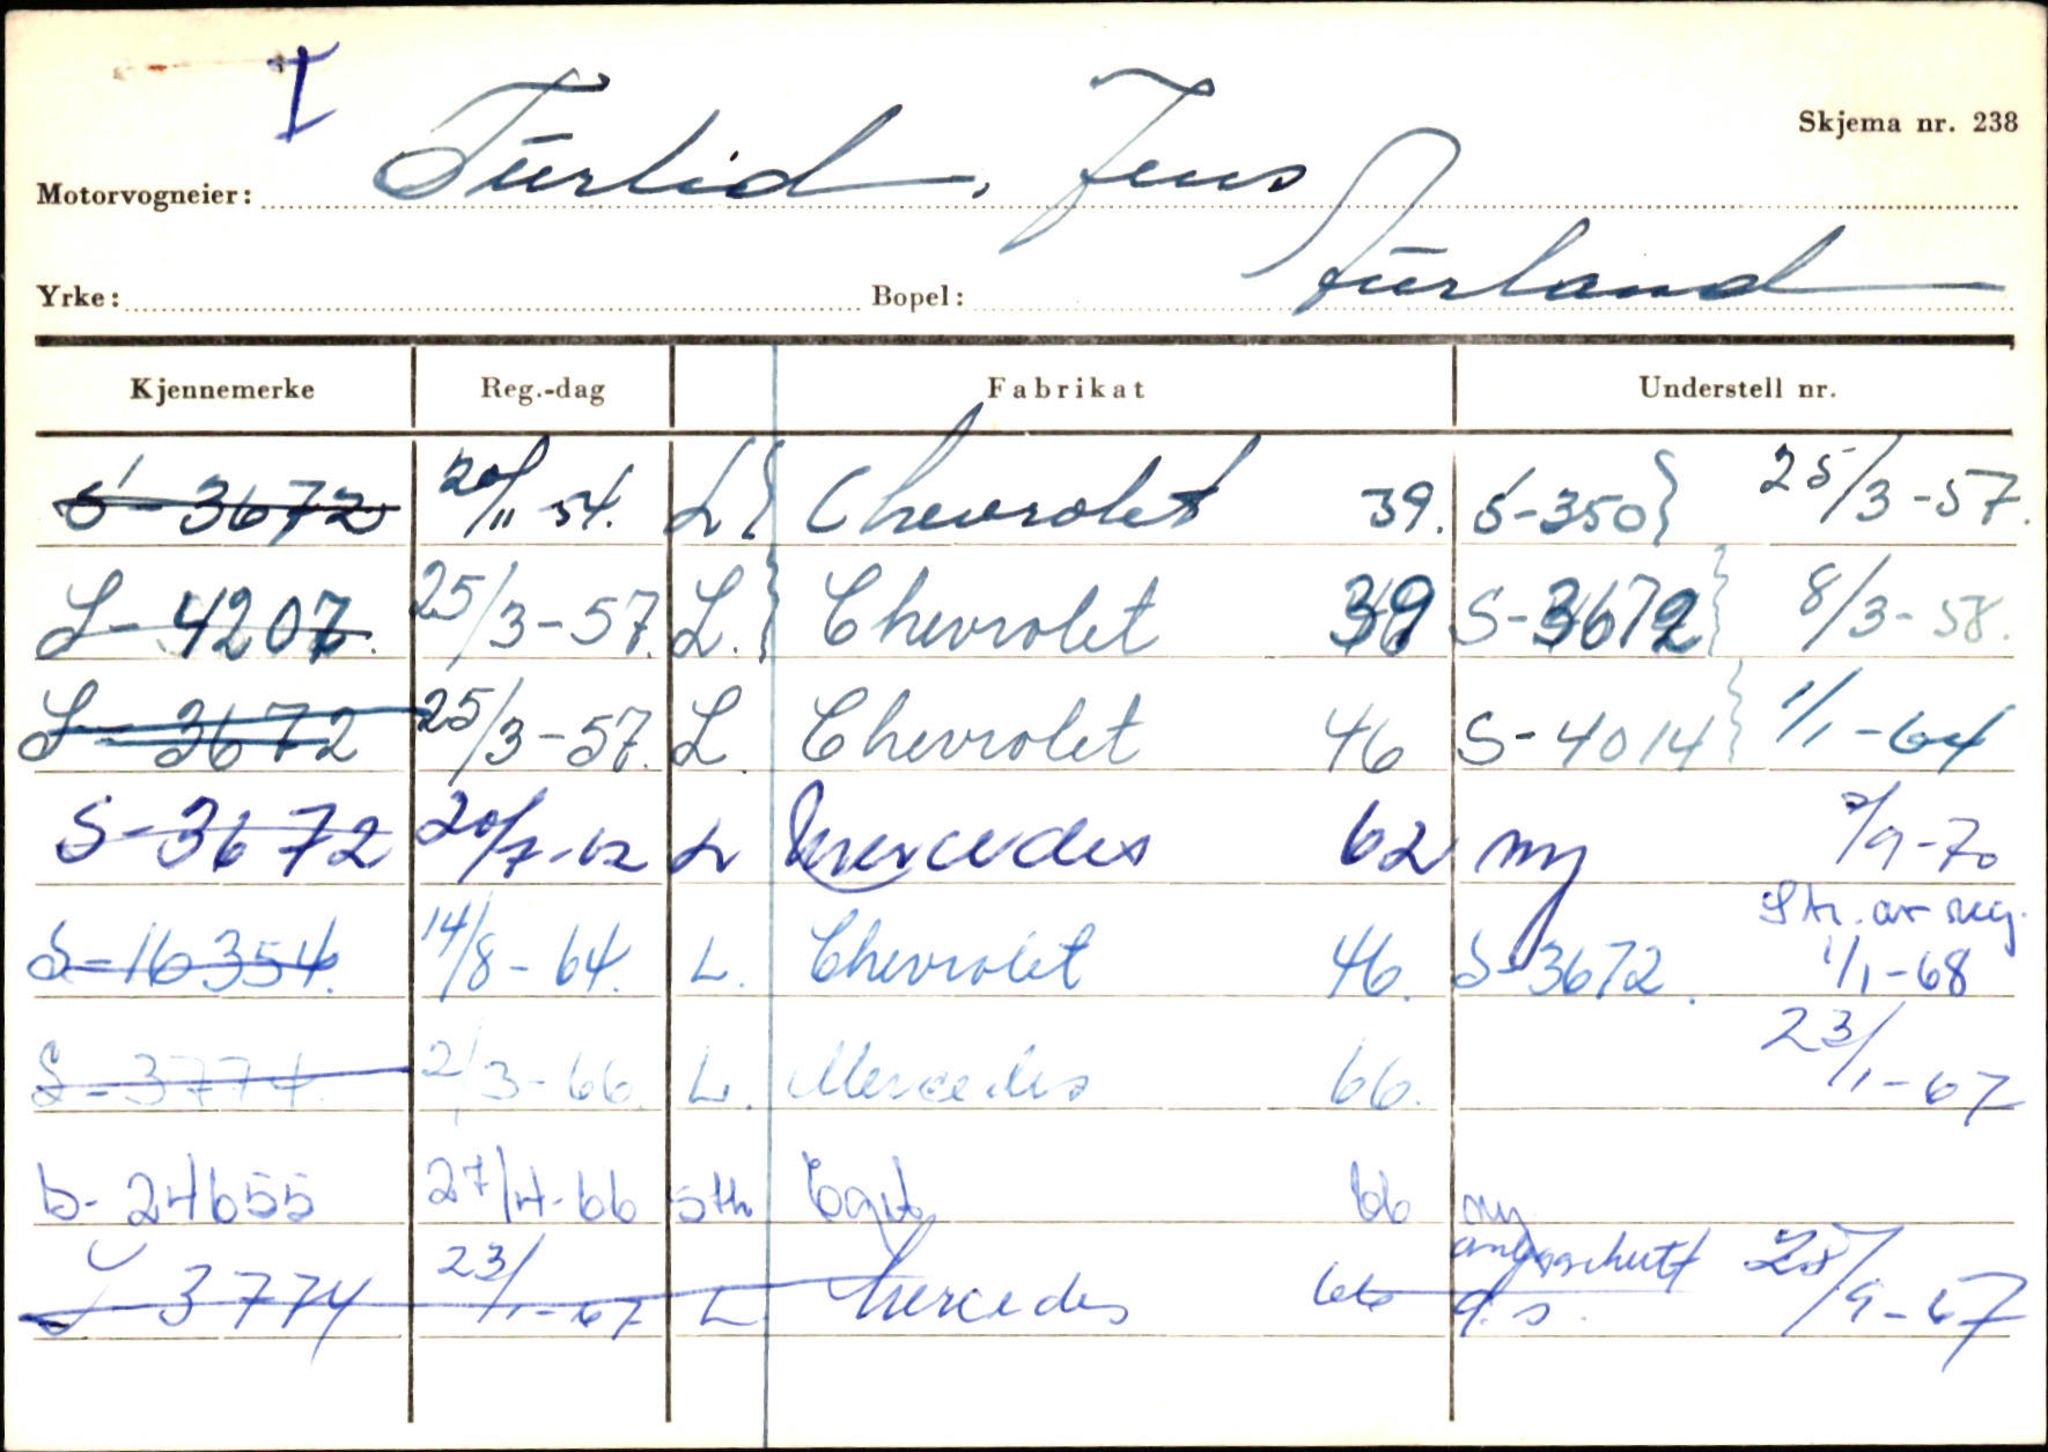 I
Skjema nr. 238
Motorvogneier: Turlid, Jens
Yrke: Bopel: Aurland
Kjennemerke Reg.-dag Fabrikat Understell nr.
S-3672 20/11-54. L Chevrolet 39. S-350 25/3-57.
S-4207. 25/3-57. L. Chevrolet 39 S-3672 8/3-58.
S-3672 25/3-57. L Chevrolet 46 S-4014 1/1-64
S-3672 20/7-62 L Mercedes 62 ny 2/9-70
S-16354. 14/8-64. L. Chevrolet 46. S-3672. Str. av reg. 1/1-68
S-3774. 2/3-66. L. Mercedes 66. 23/1-67
S-24655 27/4-66 sth 66 ny
S 3774 23/1-67 L Mercedes 66 d.s. 28/9-67